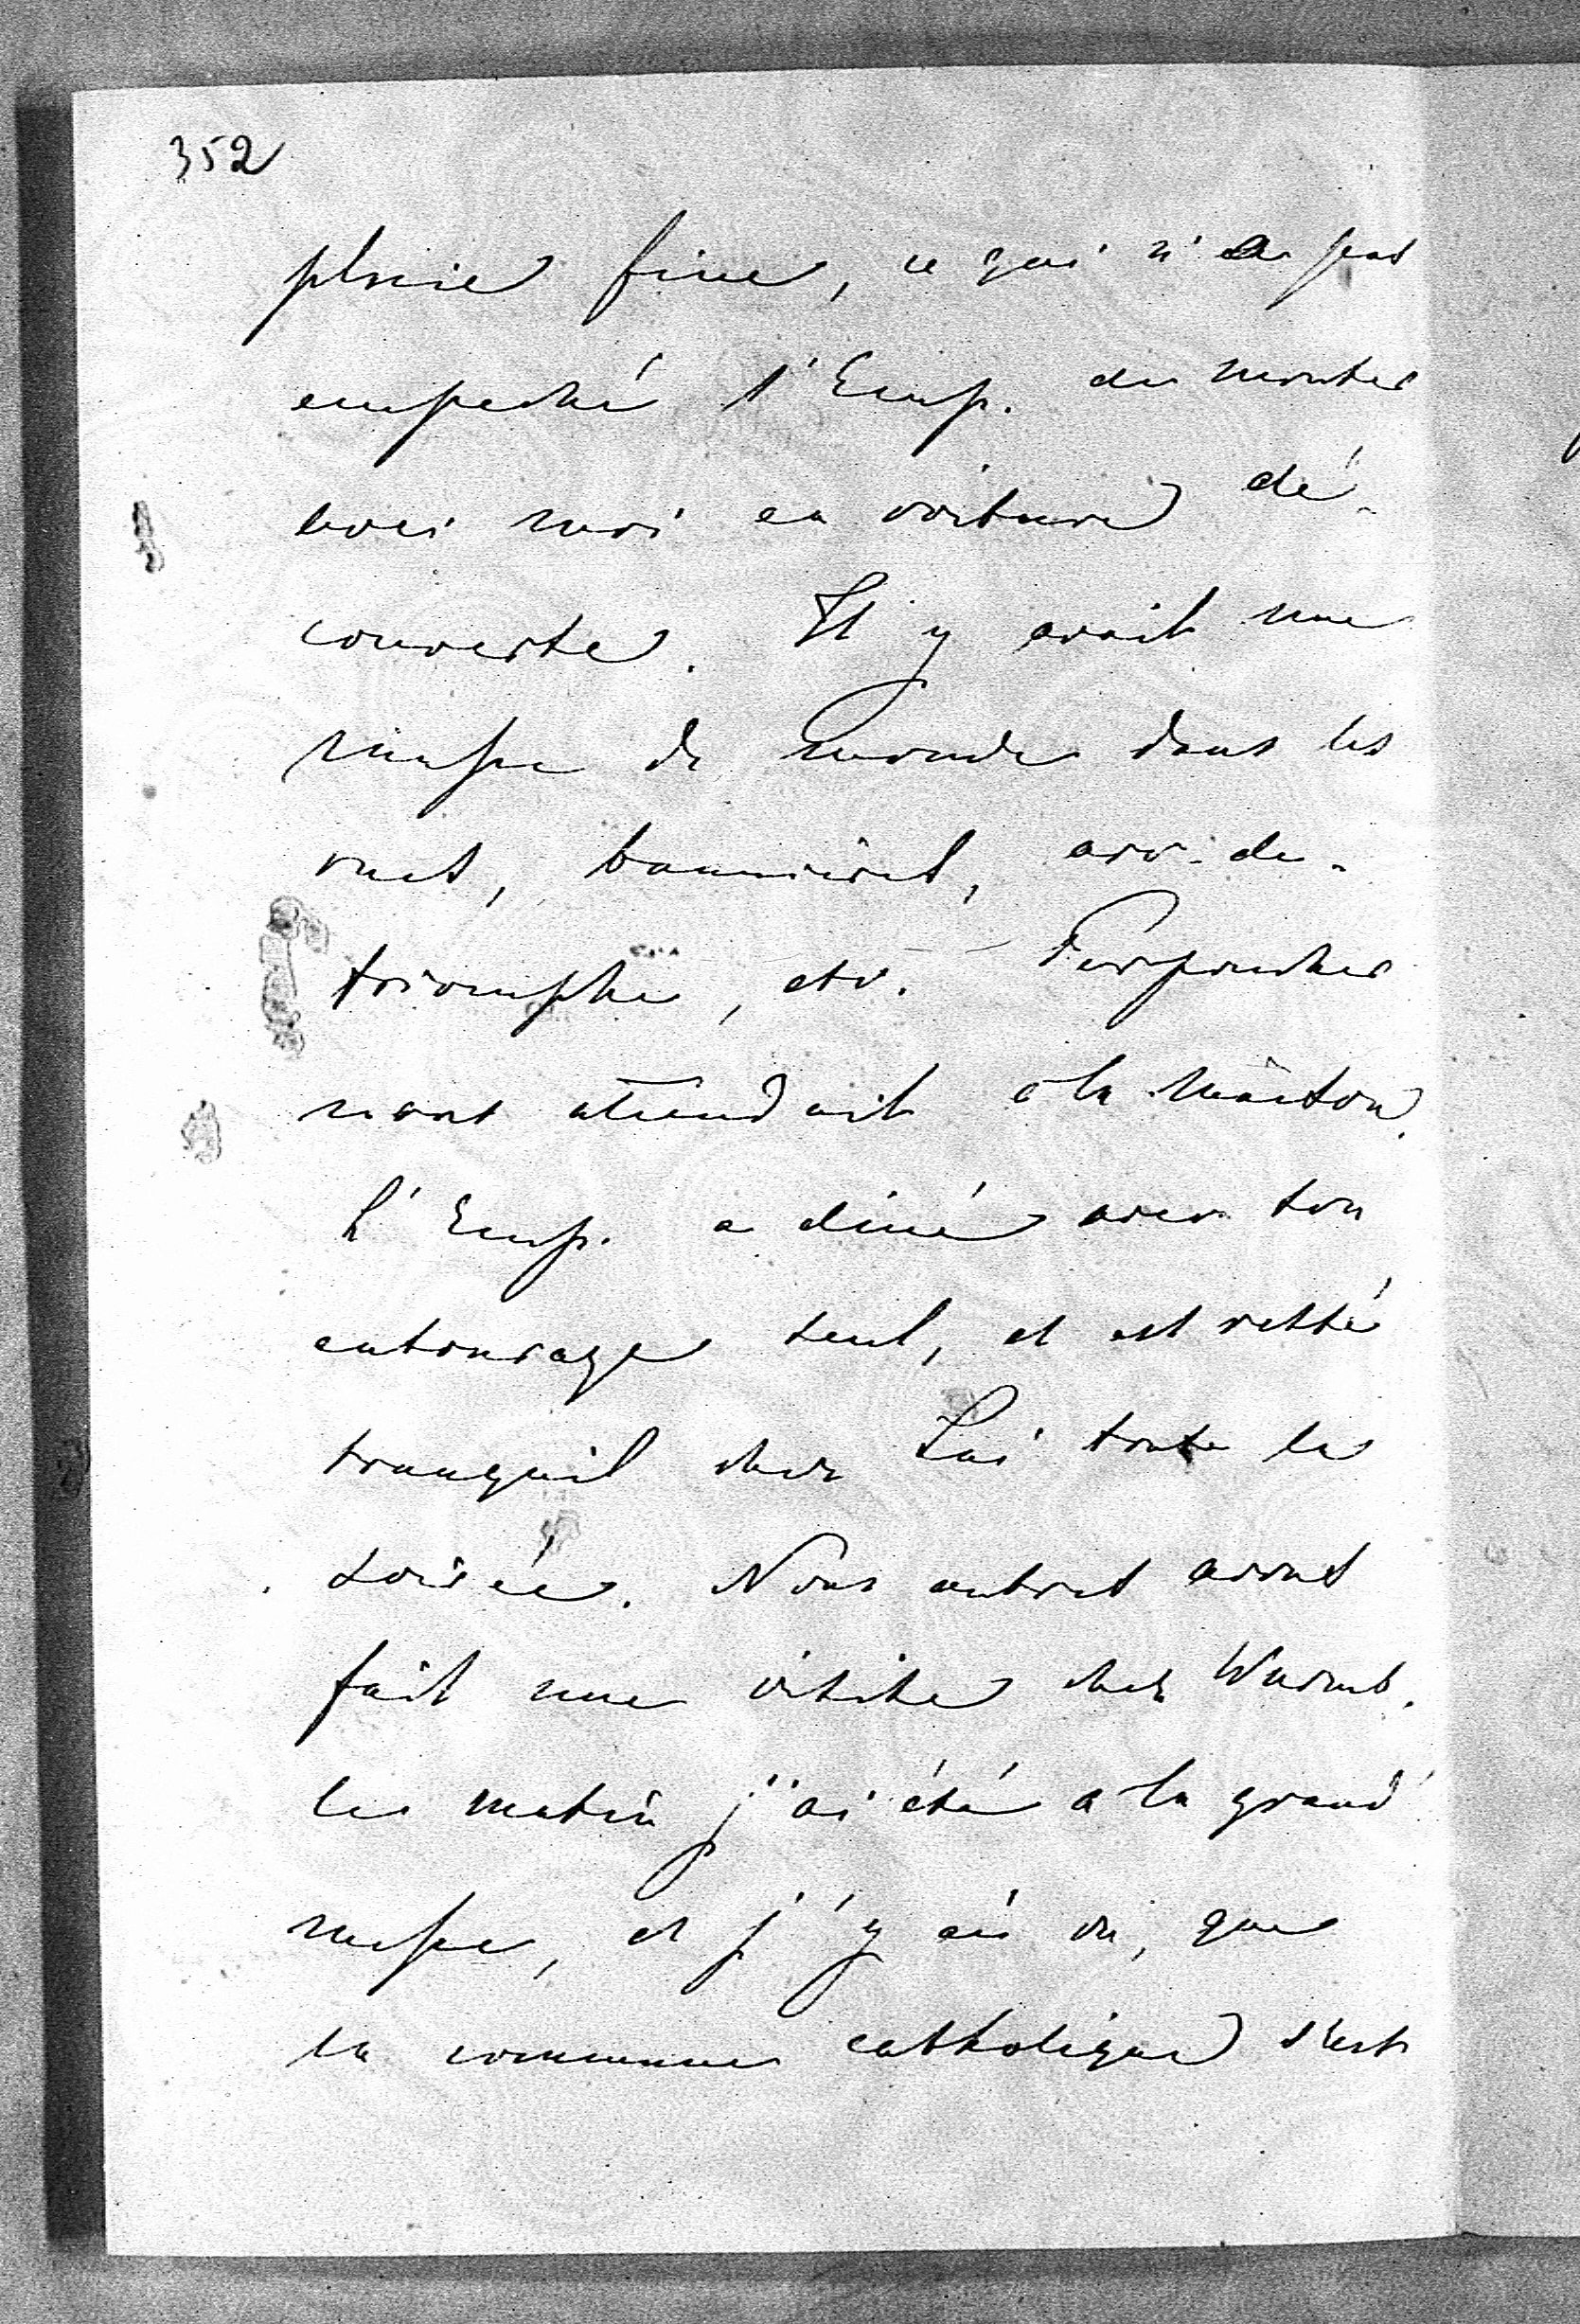 352
pluie fine, ce qui n'a pas
empeché l'Emp. de monter
avec moi en voiture dé-
couverte. Il y avait une
masse de monde dans les
rues, bannières, arc-de-
triomphe, etc. — Perponcher
nous attendait à la maison.
L'Emp. a diné avec son
entourage seul, et est resté
tranquil chez Lui toute la
soirée. Nous autres avons
fait une visite chez Wurmb.
Le matin j'ai été a la grand'
messe, et j'y ai vu, que
la commune catholique s'est